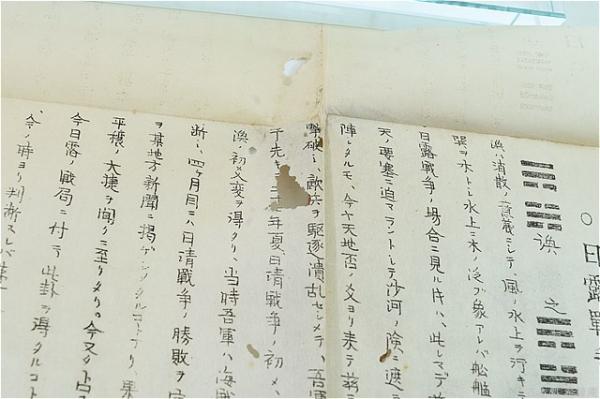 ○日露戰
渙 之
渙ハ消散ノ意義ニシテ、風ノ水上ヲ行キテ
巽ヲ木トシ水上ニ木ノ泛ブ象アレバ船艦
日露戰争ノ場合ニ見ル片ハ、此レマデ
天ノ要塞ニ迫マラントシテ沙河ノ險ニ遮
陣シタルモ、今ヤ天地否ノ爻ヨリ来テ
撃破シ敵兵ヲ駆逐潰乱セシメテ、吾軍
予先 年夏日清戰争ノ初メ、
渙ノ初爻変ヲ得タリ、当時吾軍ハ海戰
断シ、四ヶ月目ニハ日清戰争ノ勝敗ヲ
ヲ某地方新聞ニ掲ゲシメタルコトアリ、果
平穰ノ大捷ヲ聞クニ至リタリ。今又
今日露ノ戰局ニ付テ此卦ヲ得タルコト
今ノ時ヨリ判断スレバ